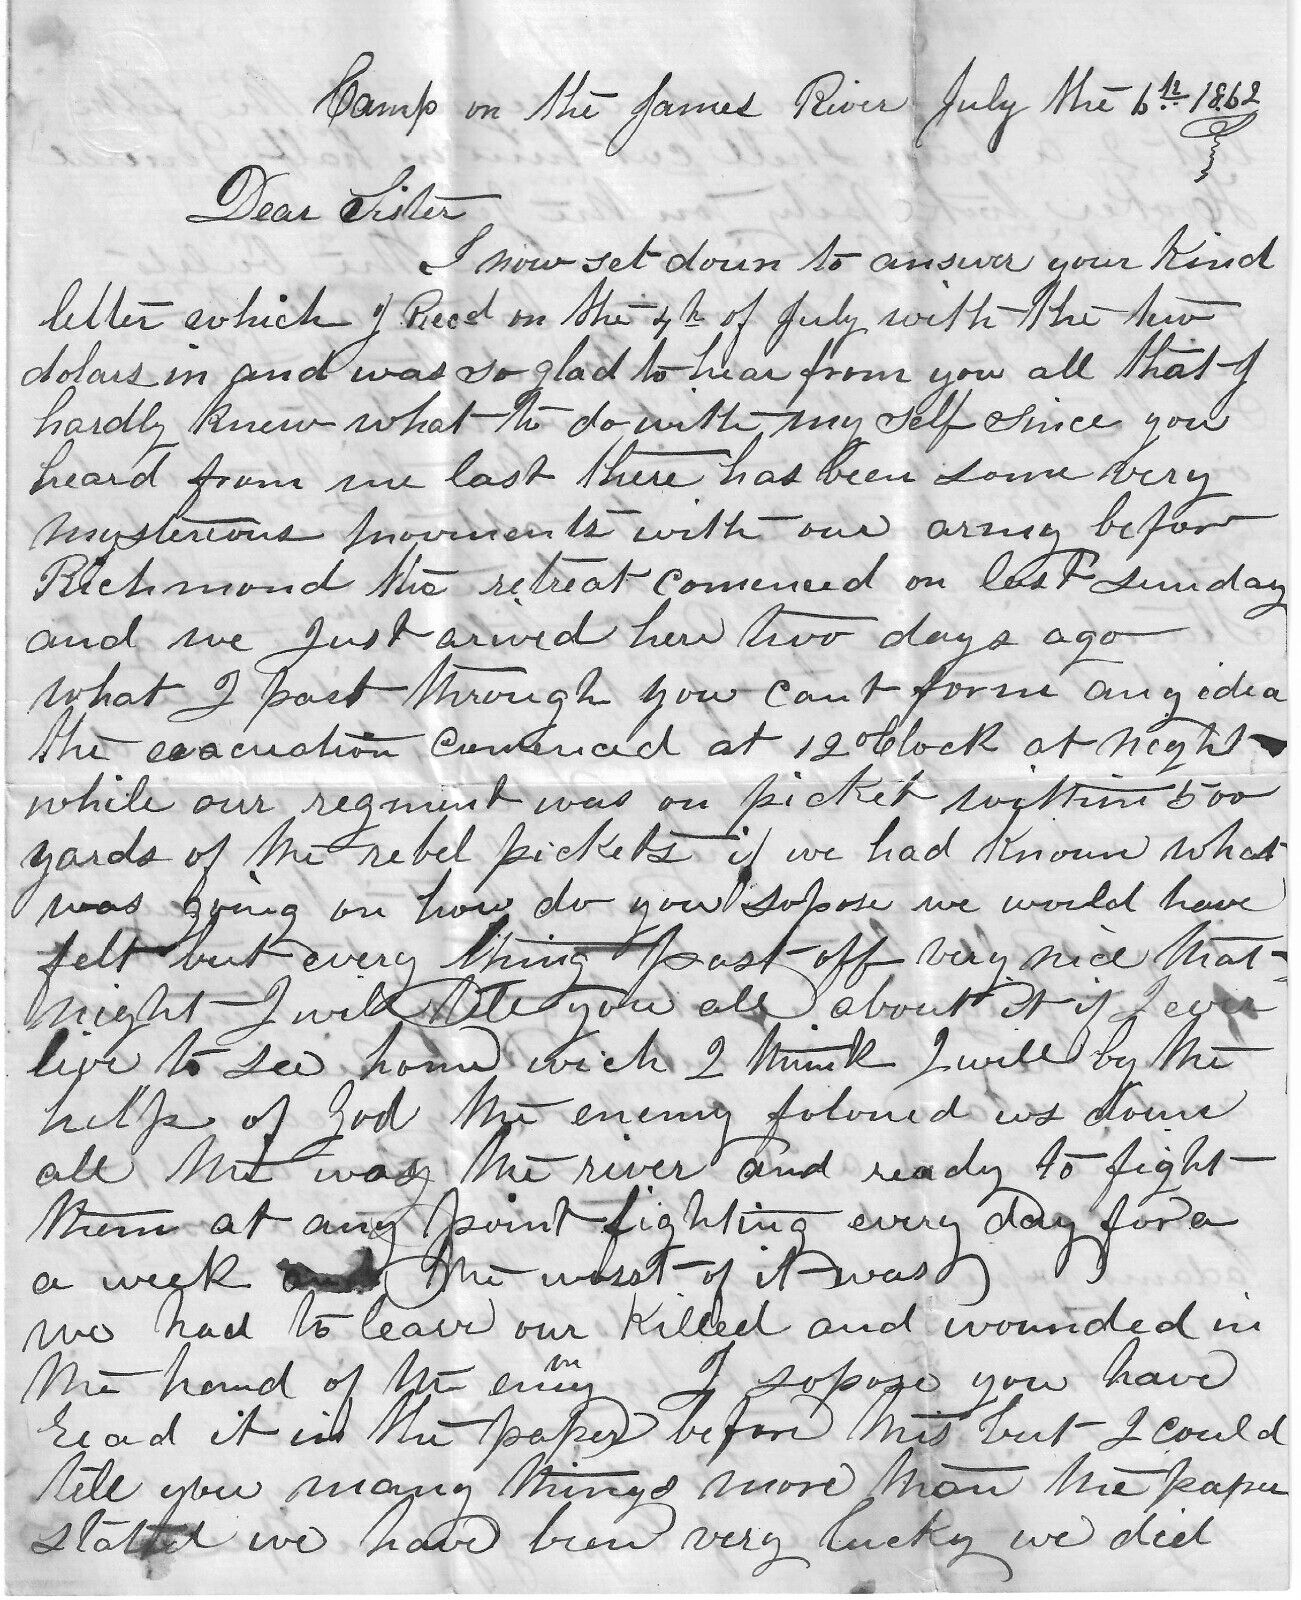 Camp on the James River July the 6th 1862
Dear Sister
I now set down to answer your Kind
letter which I Recd on the 4th of July with the two
dolars in and was so glad to hear from you all that I
hardly knew what to do with my self since you
heard from me last there has been some very
mysterious movments with our army befor
Richmond the retreat comenced on last sunday
and we Just arived here two days ago
what I past through you cant form any idea
the evacution comenced at 12 oClock at night
while our regment was on picket within 500
yards of the rebel pickets if we had known what
was going on how do you sopose we would have
felt but every thing past off very nice that
night I will tele you all about it if I ever
live to see home wich I think I will by the
help of God the enemy folowed us down
all the way the river and ready to fight
them at any point fighting every day for a
a week and the worst of it was
we had to leave our Killed and wounded in
the hand of the enimy I sopose you have
read it in the paper before this but I could
tell you many things more than the paper
stated we have been very lucky we did